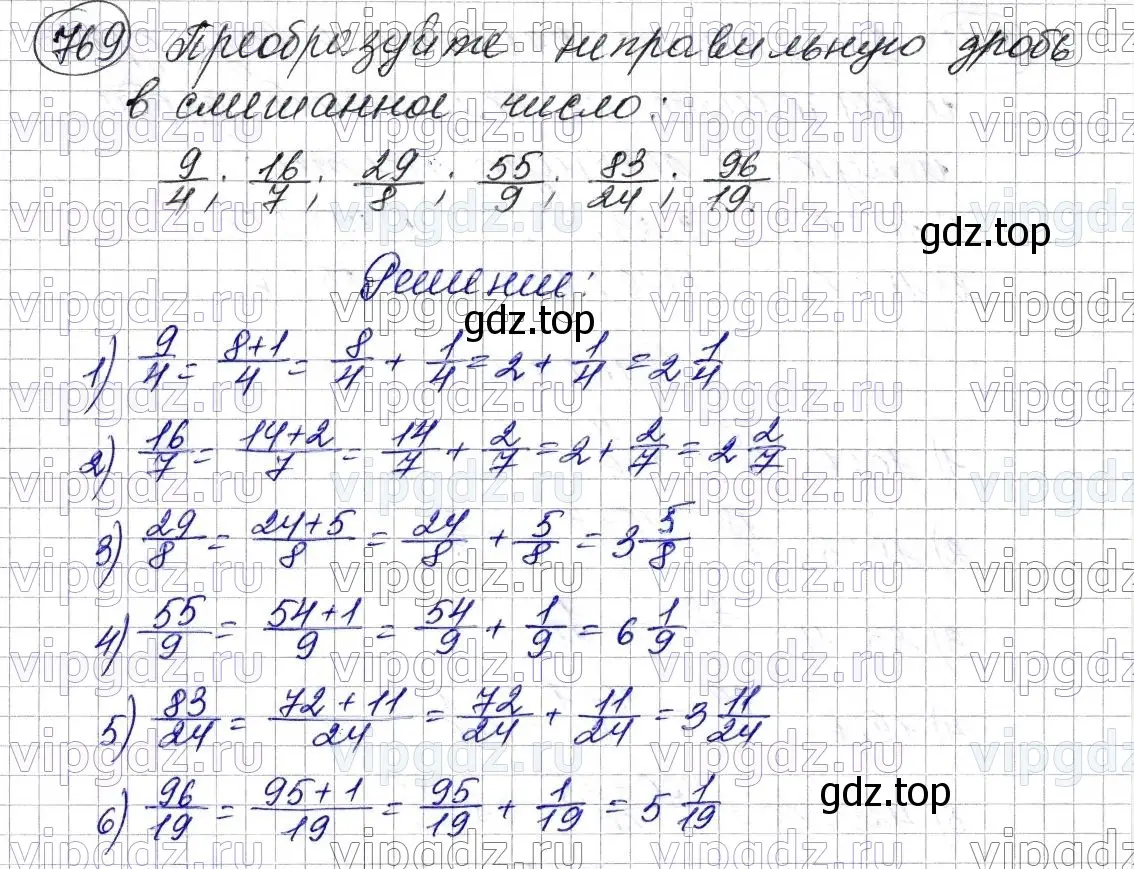 769 Преобразуйте неправильную дробь
в смешанное число:
9/4; 16/7; 29/8; 55/9; 83/24; 96/19.
gdz.top
Решение:
gdz.top
1) 9/4 = (8+1)/4 = 8/4 + 1/4 = 2 + 1/4 = 2 1/4
2) 16/7 = (14+2)/7 = 14/7 + 2/7 = 2 + 2/7 = 2 2/7
3) 29/8 = (24+5)/8 = 24/8 + 5/8 = 3 5/8
4) 55/9 = (54+1)/9 = 54/9 + 1/9 = 6 1/9
5) 83/24 = (72+11)/24 = 72/24 + 11/24 = 3 11/24
6) 96/19 = (95+1)/19 = 95/19 + 1/19 = 5 1/19
gdz.top
vipgdz.ru